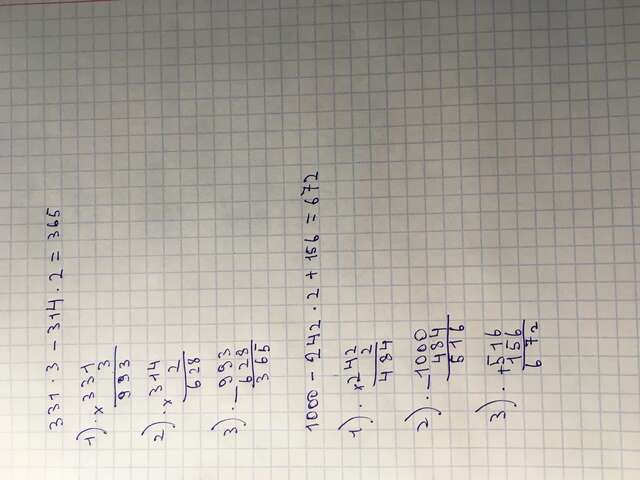 331 · 3 - 314 · 2 = 365
1) · × 331
3
993
2) · × 314
2
628
3) · - 993
628
365
1000 - 242 · 2 + 156 = 672
1) · × 242
2
484
2) · - 1000
484
516
3) · + 516
156
672